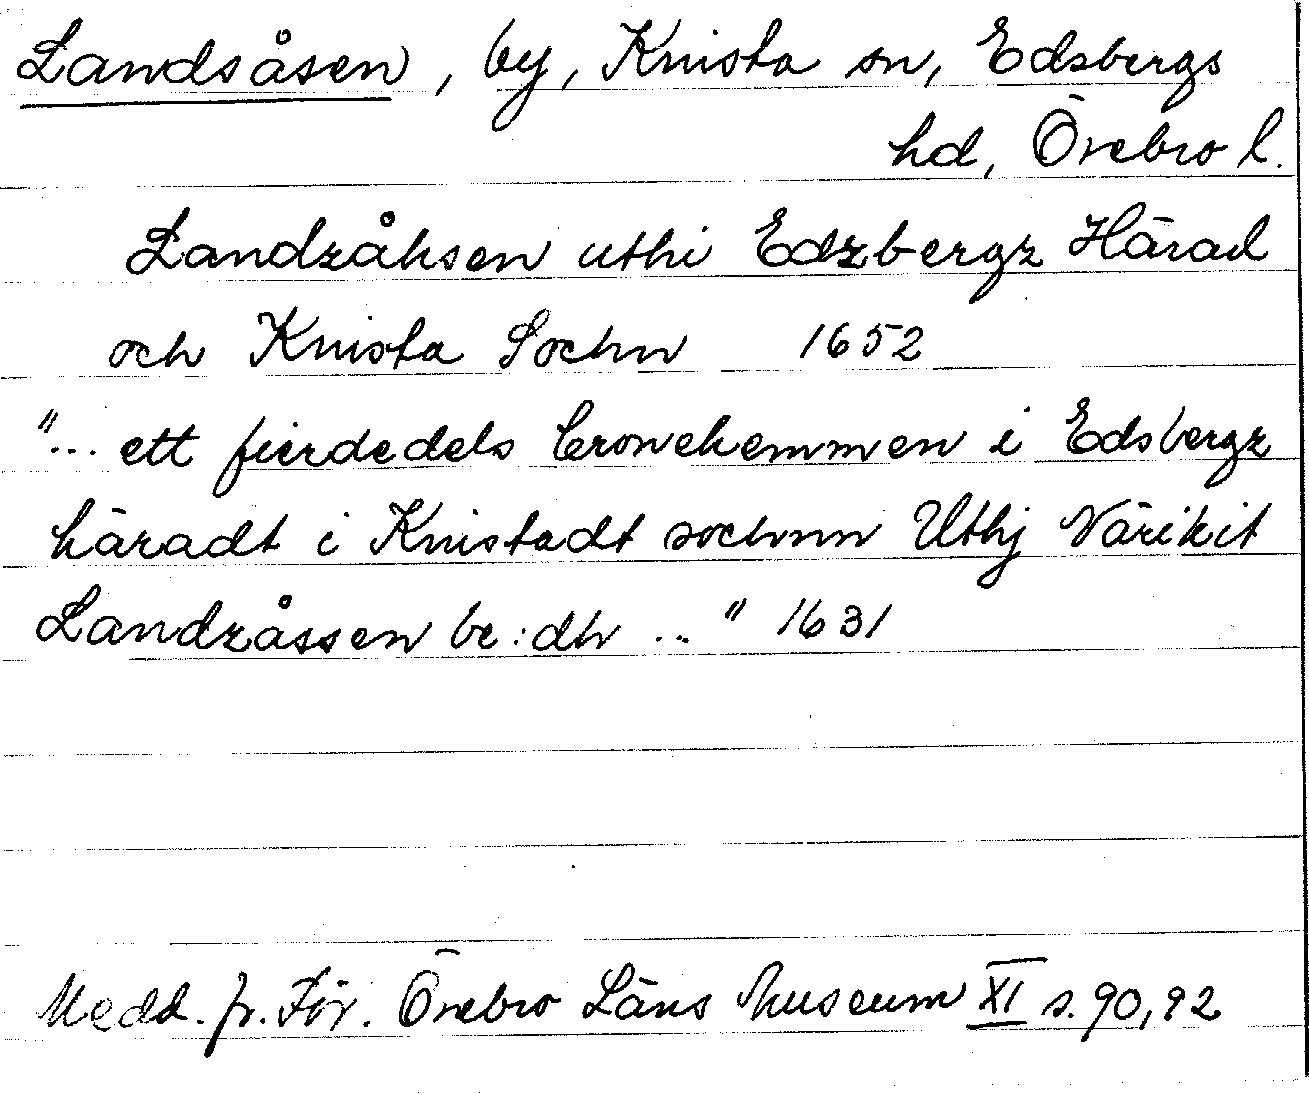 Landsåsen, by, Knista sn, Edsbergs
hd, Örebro l.
Landzåhsen uthi Edzbergz Härad
och Knista Sochn 1652
"... ett fierdedels Cronehemmen i Edsbergz
häradt i Knistadt sochnn Uthj Närikit
Landzåssen be:dh ..." 1631
Medd. fr. För. Örebro Läns Museum XI s. 90, 92